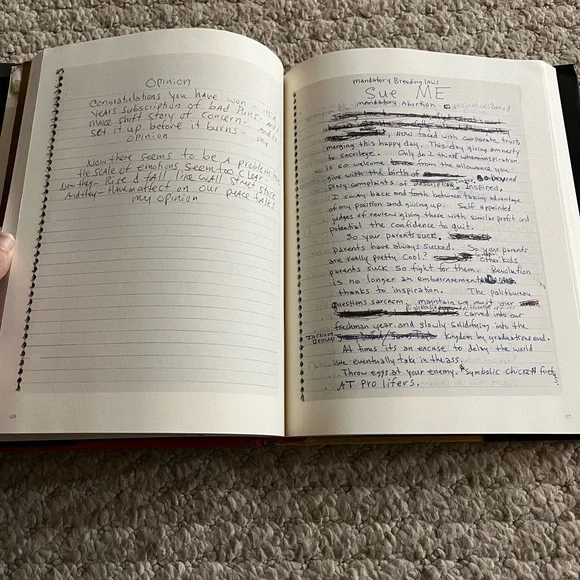 Opinion
Congratulations you have won - its a
years subscription of bad Puns - and a
make shift story of concern - 
set it up before it burns - my
opinion
Now there seems to be a problem
the scale of emotions seem too
Rise & fall like wall street stock
Have an affect on our peace talks
my opinion
126
mandatory Breeding laws
Sue ME
mandatory Abortion
Now faced with corporate trust
merging this happy day. This day giving amnesty
to sacrilege. Only do it when inspiration
is so welcome from the allowance you
give with the birth of
Inspired,
I sway back and forth between taking advantage
of my position and giving up. Self appointed
judges of review giving those with similar profit and
potential the confidence to quit.
So your parents suck.
parents have always sucked. So your parents
are really pretty cool? Other kids
parents suck so fight for them. Revolution
is no longer an embarrassment
thanks to inspiration. The politbureau
questions sarcasm, maintain we must our
carved into our
freshman year and slowly solidifying into the
JACKSON
BROWN
kingdom by graduations end.
At times its an excuse to delay the world
we eventually take in the ass.
Throw eggs at your enemy. Symbolic chicken fetus
AT Pro lifers.
127